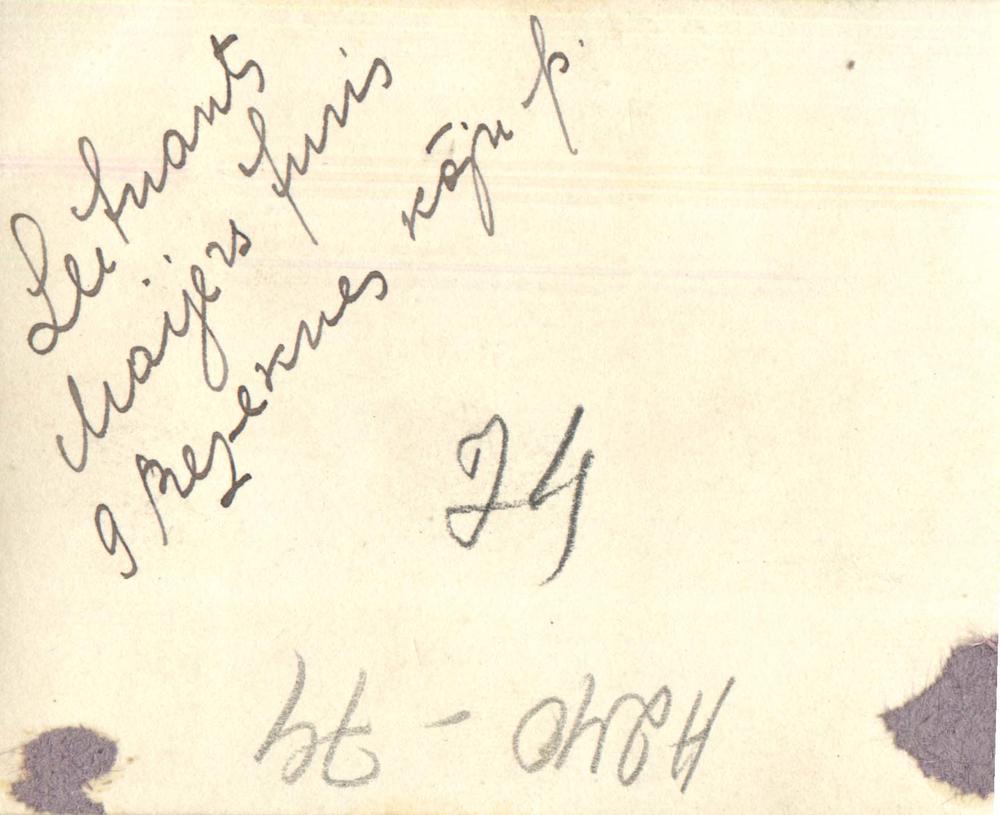 Leitnants
Maijers Juris
9 Rezeknes kāju p.
74
A240 - 74